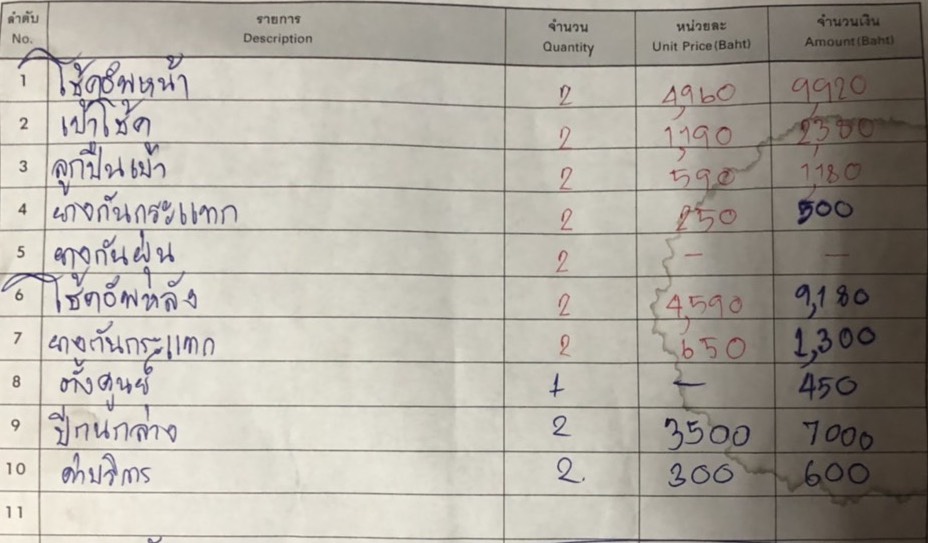 ลำดับ รายการ จำนวน หน่วยละ จำนวนเงิน
No. Description Quantity Unit Price (Baht) Amount (Baht)
1 โช้คอัพหน้า 2 4,960 9,920
2 เบ้าโช้ค 2 1,190 2,380
3 ลูกปืนเบ้า 2 590 1,180
4 ยางกันกระแทก 2 250 500
5 ยางกันฝุ่น 2 - -
6 โช้คอัพหลัง 2 4,590 9,180
7 ยางกันกระแทก 2 650 1,300
8 ตั้งศูนย์ 1 - 450
9 ปีกนกล่าง 2 3500 7000
10 ค่าบริการ 2. 300 600
11